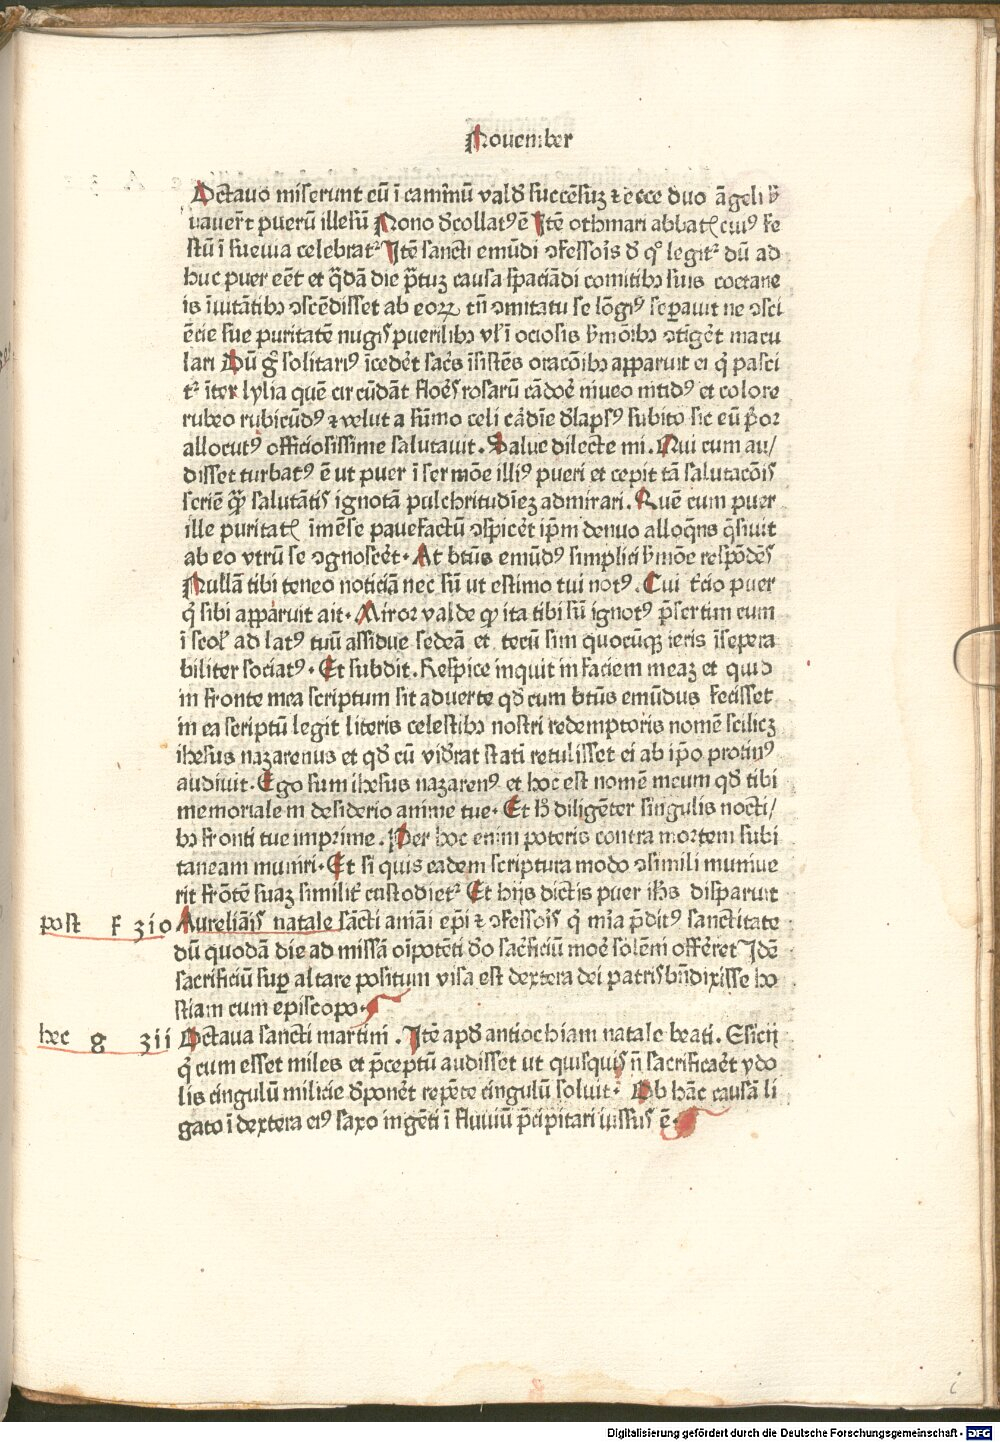 Nouember
Octauo miserunt eū ī caminū vald succēsuꝫ ⁊ ecce duo āgeli ẜ
uauer̄t puerū illesū Nono dcollatꝰ ē Itē othmari abbatꝭ cuiꝰ fe
stū ī sueuia celebrat᷑ Itē sancti emūdi ꝯfessoīs d qͦ legit᷑ dū ad
huc puer eēt et q̄dā die p̄tuꝫ causa spaciādi comitibꝫ suis coetane
is īuitātibꝫ ꝯscēdisset ab eoꝝ tn̄ ꝯmitatu se lōgiꝰ sepauit ne ꝯsci
ēcie sue puritatē nugis puerilibꝫ vl' ī ociosis ẜmōibꝫ ꝯtiget macu
lari Dū gͦ solitariꝰ īcedet sacs īsistēs oracōibꝫ apparuit ei q̄ pasci
t᷑ īter lylia quē circūdāt floes rosarū cādoe niueo nitidꝰ et colore
rubeo rubicūdꝰ ⁊ velut a sūmo celi cardīe dlapsꝰ subito sic eū p̄or
allocutꝰ officiosissime salutauit. Salue dilecte mi. Qui cum au/
disset turbatꝰ ē ut puer ī sermōe illiꝰ pueri et cepit tā salutacōis
seriē qꝫ salutātis ignotā pulchritudīeꝫ admirari. Quē cum puer
ille puritatꝭ īmēse pauefactū ꝯspicet ip̄m denuo alloq̄ns q̄siuit
ab eo vtrū se ꝯgnoscet. At btūs emūdꝰ simplici ẜmōe respōdēs
Nullā tibi teneo noticiā nec sū ut estimo tui notꝰ. Cui tcio puer
q̄ sibi apparuit ait. Miror valde ꝙ ita tibi sū ignotꝰ p̄sertim cum
ī scol' ad latꝰ tuū assidue sedeā et tecū sim quocūqꝫ ieris īsepera
biliter sociatꝰ. Et subdit. Respice inquit in faciem meaꝫ et quid
in fronte mea scriptum sit aduerte qd cum btūs emūdus fecisset
in ea scriptū legit literis celestibꝫ nostri redemptoris nomē scilicꝫ
ihesus nazarenus et qd cū vidrat statī retulisset ei ab ip̄o protinꝰ
audiuit. Ego sum ihesus nazarenꝰ et hoc est nomē meum qd tibi
memoriale in desiderio anime tue. Et h' diligēter singulis nocti/
bꝫ fronti tue imprime. Per hoc enim poteris contra mortem subi
taneam muniri. Et si quis eadem scriptura modo ꝯsimili muniue
rit frōtē suaꝫ similit custodiet᷑ Et hijs dictis puer ihs disparuit
post f zio Aureliāis natale sācti aniāi ep̄i ⁊ ꝯfessoīs q̄ mīa p̄ditꝰ sanctitate
dū quodā die ad missā oīpotēti do sacficiū moe solēni offeret Idē
sacrificiū sup altare positum visa est dextera dei patris bn̄dixisse ho
stiam cum episcopo.
hec g zii Octaua sancti martini. Itē apd antiochiam natale beati. Esicij
q̄ cum esset miles et p̄ceptū audisset ut quisquis n̄ sacrificaet ydo
lis cingulū milicie dponet repēte cingulū soluit. Ob hāc causā li
gato ī dextera eiꝰ saxo ingēti ī fluuiū p̄cipitari iussus ē.
Digitalisierung gefördert durch die Deutsche Forschungsgemeinschaft - DFG